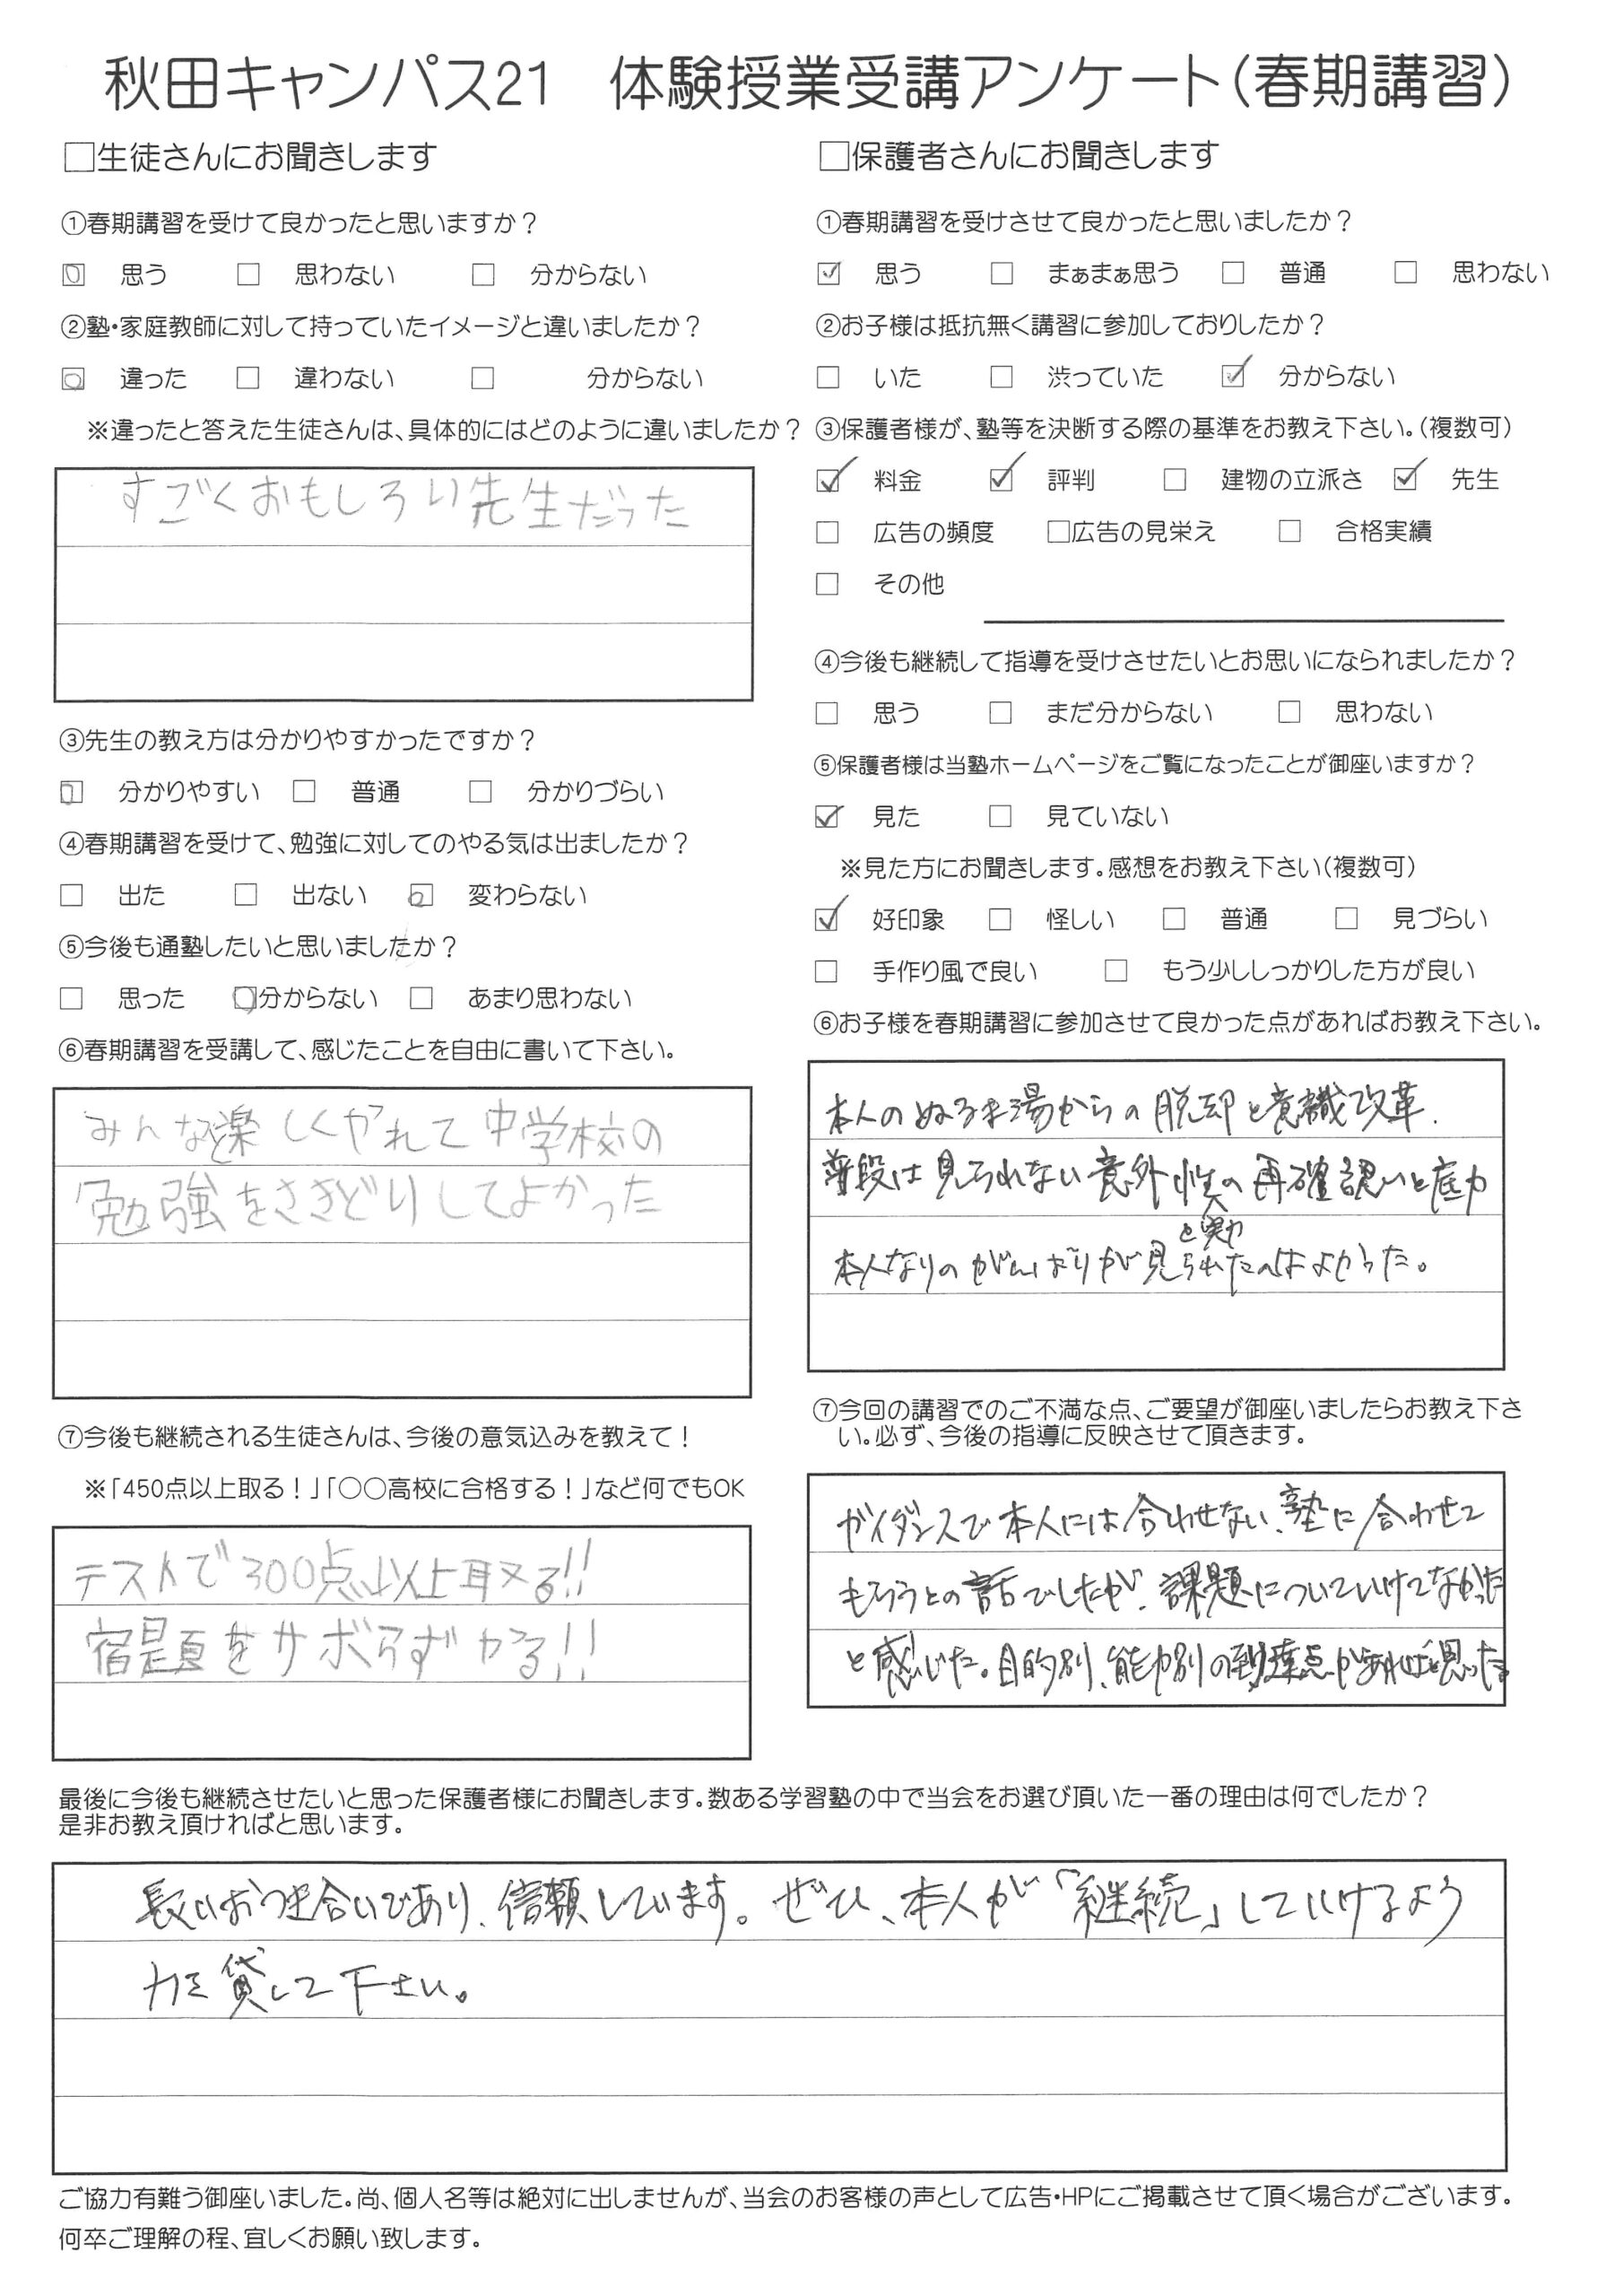 秋田キャンパス21 体験授業受講アンケート(春期講習)
□生徒さんにお聞きします
①春期講習を受けて良かったと思いますか?
☑ 思う □ 思わない □ 分からない
②塾・家庭教師に対して持っていたイメージと違いましたか?
☑ 違った □ 違わない □ 分からない
※違ったと答えた生徒さんは、具体的にはどのように違いましたか?
すごくおもしろい先生だった
③先生の教え方は分かりやすかったですか?
☑ 分かりやすい □ 普通 □ 分かりづらい
④春期講習を受けて、勉強に対してのやる気は出ましたか?
□ 出た □ 出ない ☑ 変わらない
⑤今後も通塾したいと思いましたか?
□ 思った ☑分からない □ あまり思わない
⑥春期講習を受講して、感じたことを自由に書いて下さい。
みんな楽しくやれて中学校の
勉強をさきどりしてよかった
⑦今後も継続される生徒さんは、今後の意気込みを教えて!
※「450点以上取る!」「○○高校に合格する!」など何でもOK
テストで300点以上取る!!
宿題をサボらずやる!!
□保護者さんにお聞きします
①春期講習を受けさせて良かったと思いましたか?
☑ 思う □ まぁまぁ思う □ 普通 □ 思わない
②お子様は抵抗無く講習に参加しておりしたか?
□ いた □ 渋っていた ☑ 分からない
③保護者様が、塾等を決断する際の基準をお教え下さい。(複数可)
☑ 料金 ☑ 評判 □ 建物の立派さ ☑ 先生
□ 広告の頻度 □広告の見栄え □ 合格実績
□ その他
④今後も継続して指導を受けさせたいとお思いになられましたか?
□ 思う □ まだ分からない □ 思わない
⑤保護者様は当塾ホームページをご覧になったことが御座いますか?
☑ 見た □ 見ていない
※見た方にお聞きします。感想をお教え下さい(複数可)
☑ 好印象 □ 怪しい □ 普通 □ 見づらい
□ 手作り風で良い □ もう少ししっかりした方が良い
⑥お子様を春期講習に参加させて良かった点があればお教え下さい。
本人のぬるま湯からの脱却と意識改革.
普段は見られない意外性の再確認と底力
と実力
本人なりのがんばりが見られたのはよかった。
⑦今回の講習でのご不満な点、ご要望が御座いましたらお教え下さ
い。必ず、今後の指導に反映させて頂きます。
ガイダンスで本人には合わせない、塾に合わせて
もらうとの話でしたが、課題についていけてなかった
と感じた。目的別、能力別の到達点があればと思った。
最後に今後も継続させたいと思った保護者様にお聞きします。数ある学習塾の中で当会をお選び頂いた一番の理由は何でしたか?
是非お教え頂ければと思います。
長いおつき合いであり、信頼しています。ぜひ、本人が「継続」していけるよう
力を貸して下さい。
ご協力有難う御座いました。尚、個人名等は絶対に出しませんが、当会のお客様の声として広告・HPにご掲載させて頂く場合がございます。
何卒ご理解の程、宜しくお願い致します。